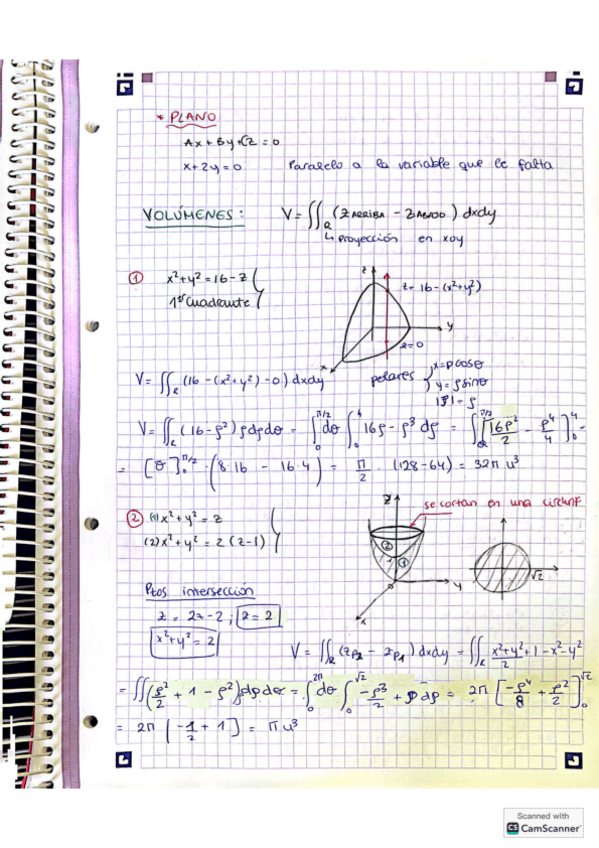 * PLANO
Ax + By + Cz = 0
x + 2y = 0 Paralelo a la variable que le falta
VOLÚMENES: V = ∬_R (Z ARRIBA - Z ABAJO) dxdy
↳ proyección en xoy
① x² + y² = 16 - z
1er cuadrante
z
z = 16 - (x² + y²)
y
z = 0
x
V = ∬_R (16 - (x² + y²) - 0) dxdy polares { x = ρ cosθ
y = ρ sinθ
|J| = ρ
V = ∬_R (16 - ρ²) ρ dρ dθ = ∫_0^{π/2} dθ ∫_0^4 16ρ - ρ³ dρ = [16ρ²/2 - ρ⁴/4]_0^4 =
= [θ]_0^{π/2} · (8·16 - 16·4) = π/2 · (128 - 64) = 32π u³
② (1) x² + y² = z
(2) x² + y² = 2(z - 1)
z
se cortan en una circunf
② ① y
0
x
√2
Ptos intersección
z = 2z - 2 ; z = 2
x² + y² = 2
V = ∬_R (z_{p2} - z_{p1}) dxdy = ∬_R x² + y²/2 + 1 - x² - y²
= ∬ (ρ²/2 + 1 - ρ²) ρ dρ dθ = ∫_0^{2π} dθ ∫_0^{√2} -ρ³/2 + ρ dρ = 2π [-ρ⁴/8 + ρ²/2]_0
= 2π [-1/2 + 1] = π u³
Scanned with
CS CamScanner